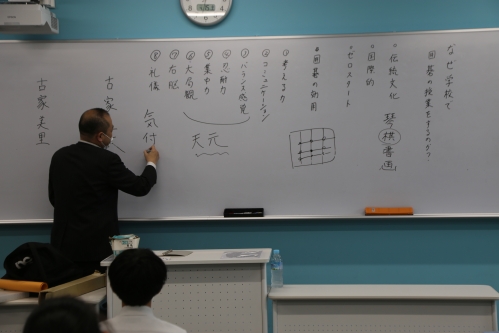 なぜ学校で
囲碁の授業をするのか?
伝統文化 琴棋書画
国際的
ゼロスタート
囲碁の効用
①考える力
②コミュニケーション
③バランス感覚
④忍耐力
⑤集中力
⑥大局観
⑦右脳
⑧礼儀
天元
気付
古家
古家美里